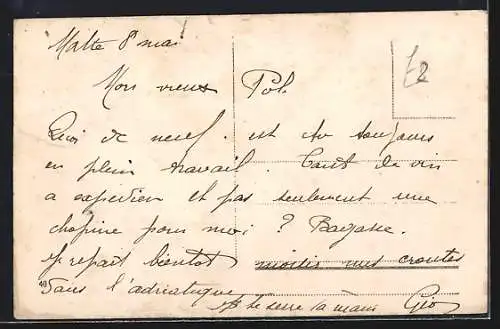 Malte 8 mai
£2
Mon vieux Pol.
Quoi de neuf. est tu toujours
en plein travail. Tant de vin
a expedier et pas seulement une
chopine pour moi ? Bagasse.
repart bientot moisir nos croutes
dans l'adriatique
49
te serre la main Géo